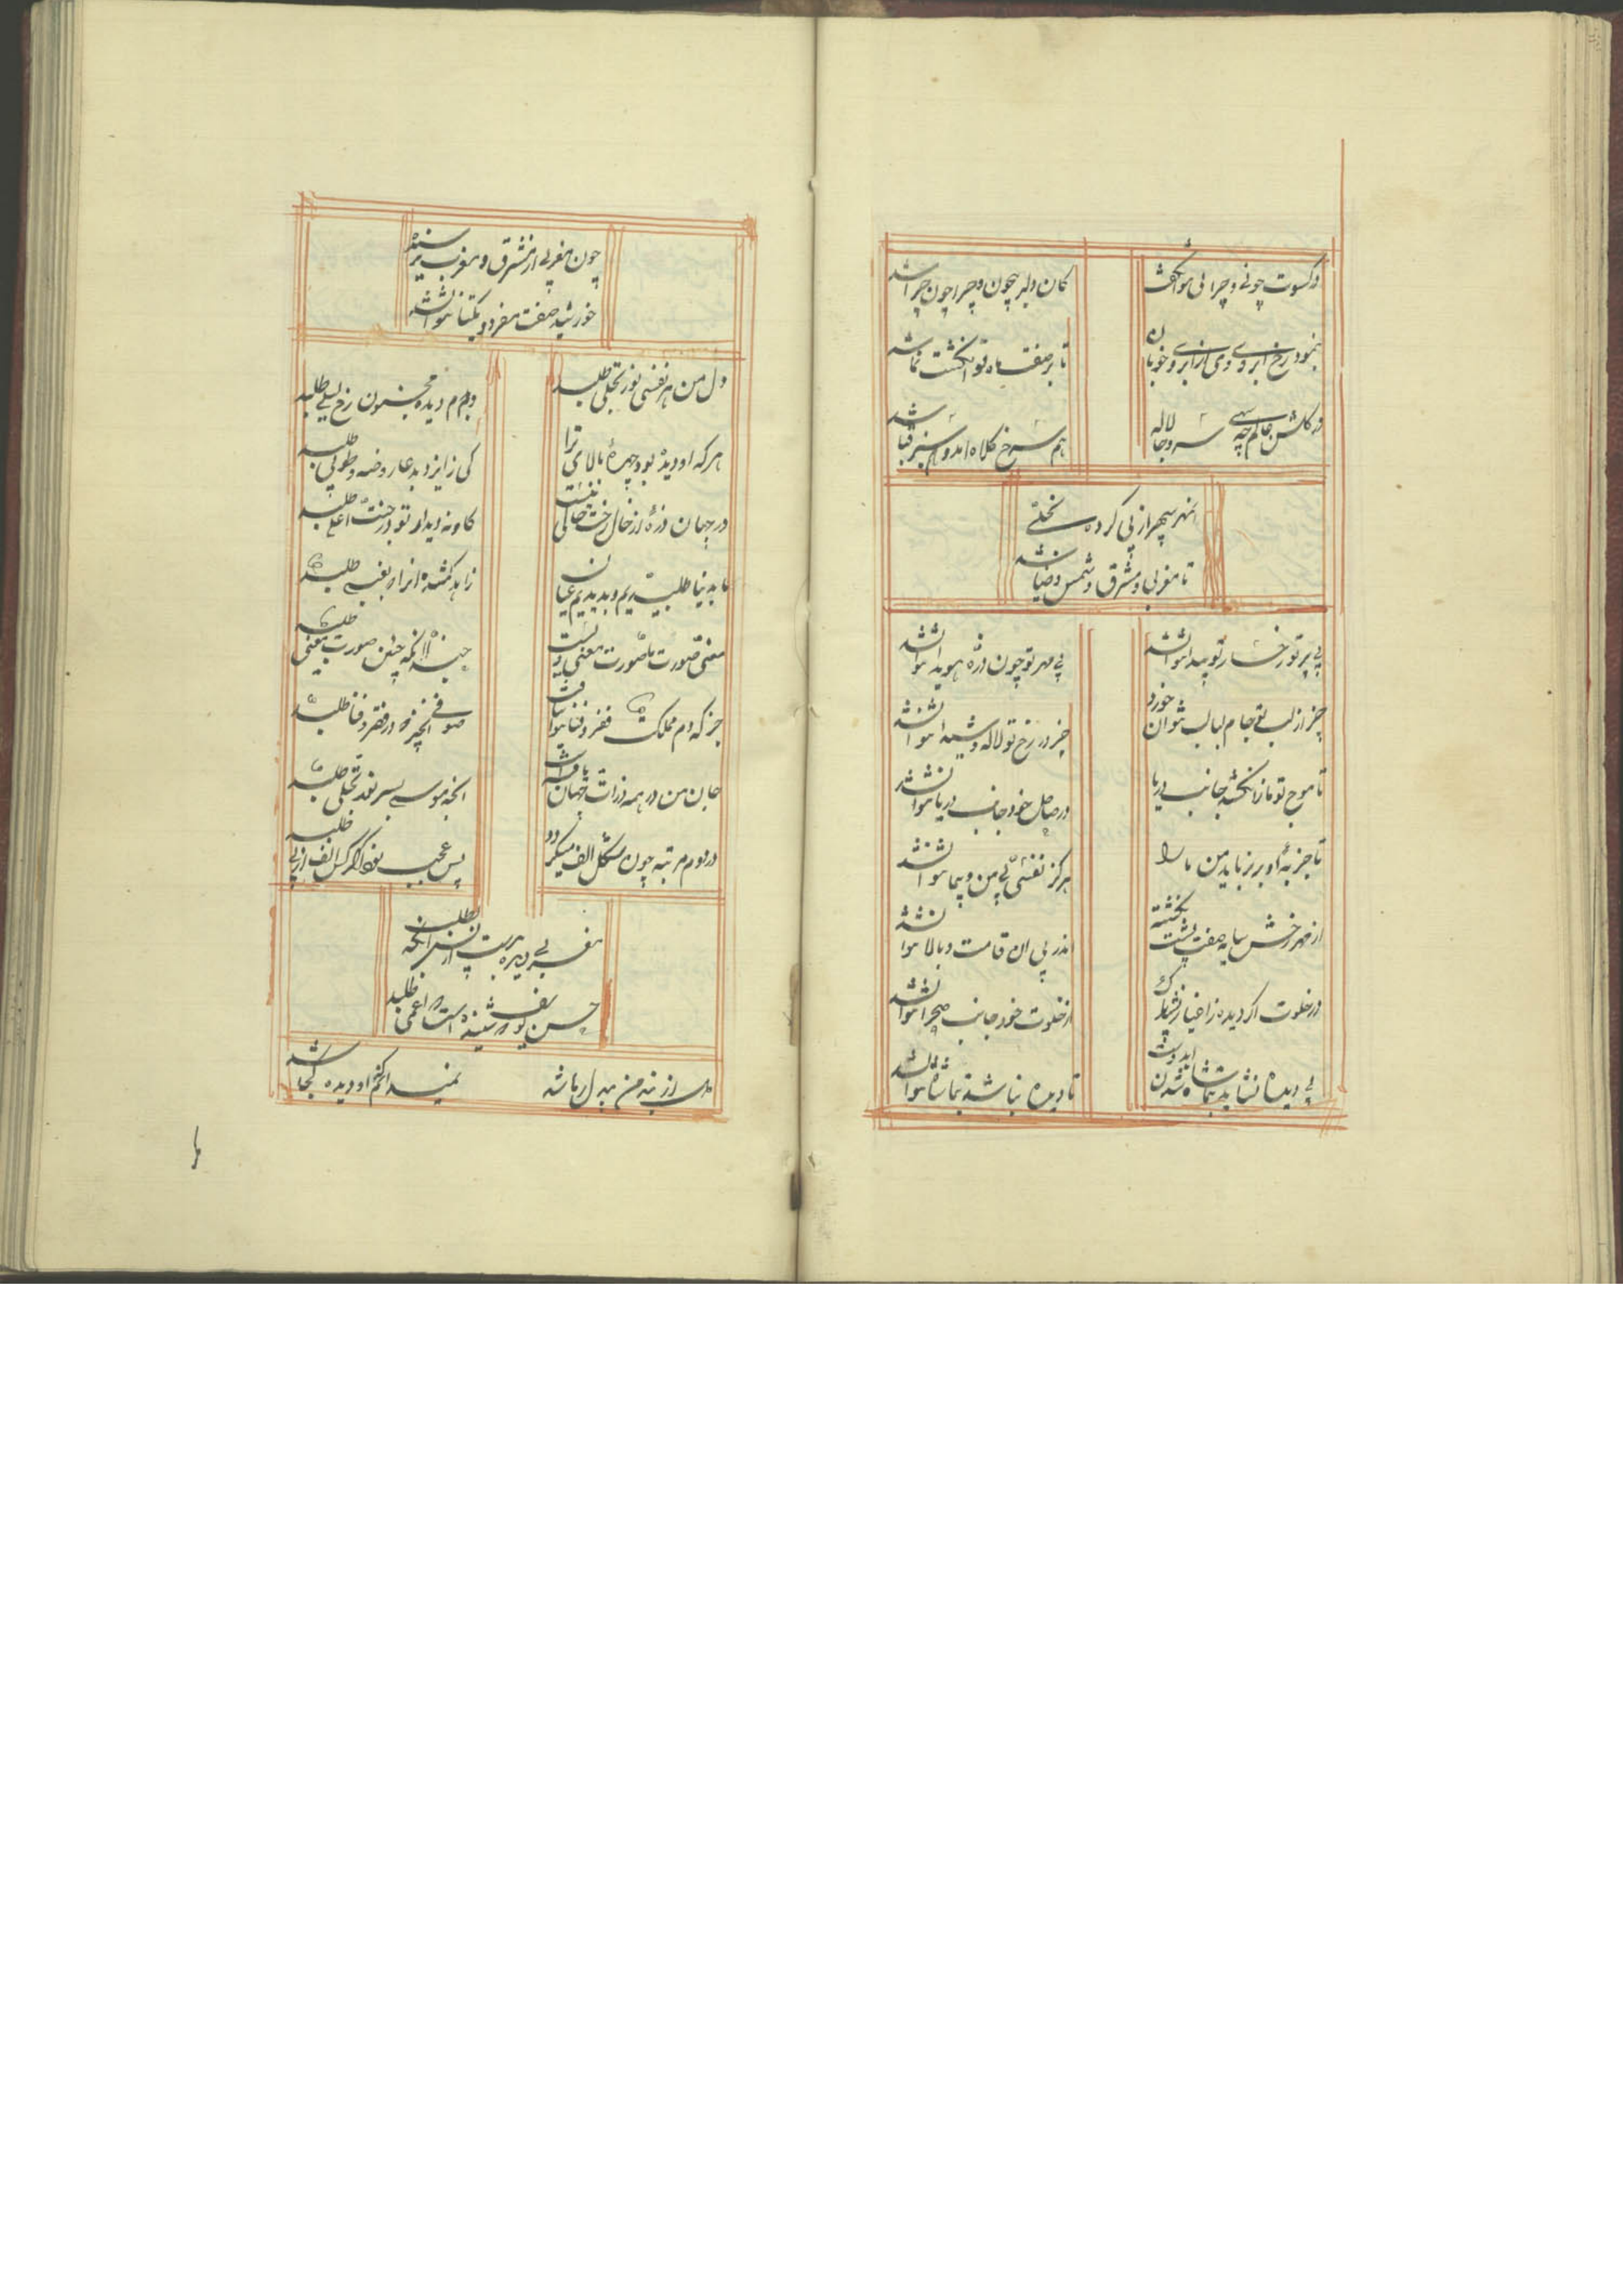 در کسوت چونی و چرایی نتوان گفت
کان دلبر بیچون و چرا چون و چرا شد
بنمود رخ ابروی وی از ابروی خوبان
تا بر صفت ماه نو انگشت نما شد
در گلشن عالم چو سهی سرو و چو لاله
هم سرخ کلاه آمد و هم سبز قبا شد
مهر سپهر ازلی کرده تجلی
تا مغربی و مشرق و شمس و ضیا شد
بی پرتو رخسار تو پیدا نتوان شد
بی مهر تو چون ذره هویدا نتوان شد
جز از لب تو جام لبالب نتوان خورد
جز در رخ تو واله و شیدا نتوان شد
تا موج تو ما را نکشد جانب دریا
از ساحل خود جانب دریا نتوان شد
تا جذبه او بر نرباید من و ما را
هرگز نفسی بی من و بی ما نتوان شد
از مهر رخش سایه صفت پست نگشته
اندر پی آن قامت و بالا نتوان شد
در خلوت اگر دیده ز اغیار نشد پاک
از خلوت خود جانب صحرا نتوان شد
بی دیده نشاید بتماشا شدن ایدوست
تا دیده نباشد بتماشا نتوان شد
چون مغربی از مشرق و مغرب نرسیده
خورشید صفت مفرد و یکتا نتوان شد
دل من هر نفسی نور تجلی طلبد
دیده مجنون رخ لیلی طلبد
هر که او دیده بود چهره و بالای ترا
کی ز ایزد بدعا روضه و طوبی طلبد
در جهان ذره از خال رخت خالی نیست
کاو نه دیدار تو در جنت اعلی طلبد
ما بدنیا طلبیدیم و بدیدیم عیان
زاهد گمشده آنرا که بعقبی طلبد
معنی و صورت ما صورت و معنی ویست
حبذا آنکه چنین صورت و معنی طلبد
جز که در مملکت فقر و فنا نتوان یافت
صوفی آنچیز که در فقر و فنا طلبد
جان من در همه ذرات جهان یافته است
آنچه موسی بسر نور تجلی طلبد
در دوم مرتبه چون شکل الف میگردد
پس عجب نبود اگر کس الف از بی طلبد
مغربی دیده بدست آر پس آنگه بطلب
حسن یوسف نشنیده است که اعمی طلبد
نمیبیند آنکه او دیده کجا شد
ما